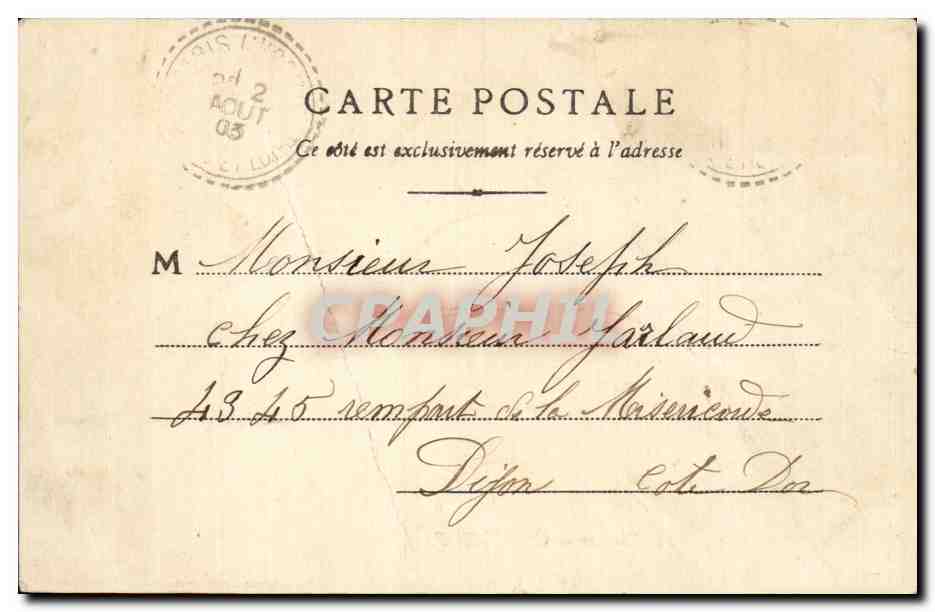 PARIS L'HO
2
AOUT
03
ET LOIRE
CARTE POSTALE
Ce côté est exclusivement réservé à l'adresse
M Monsieur Joseph
CPAPHIL
chez Monsieur Jarlaud
43 45 rempart de la Misericorde
Dijon Cote Dor